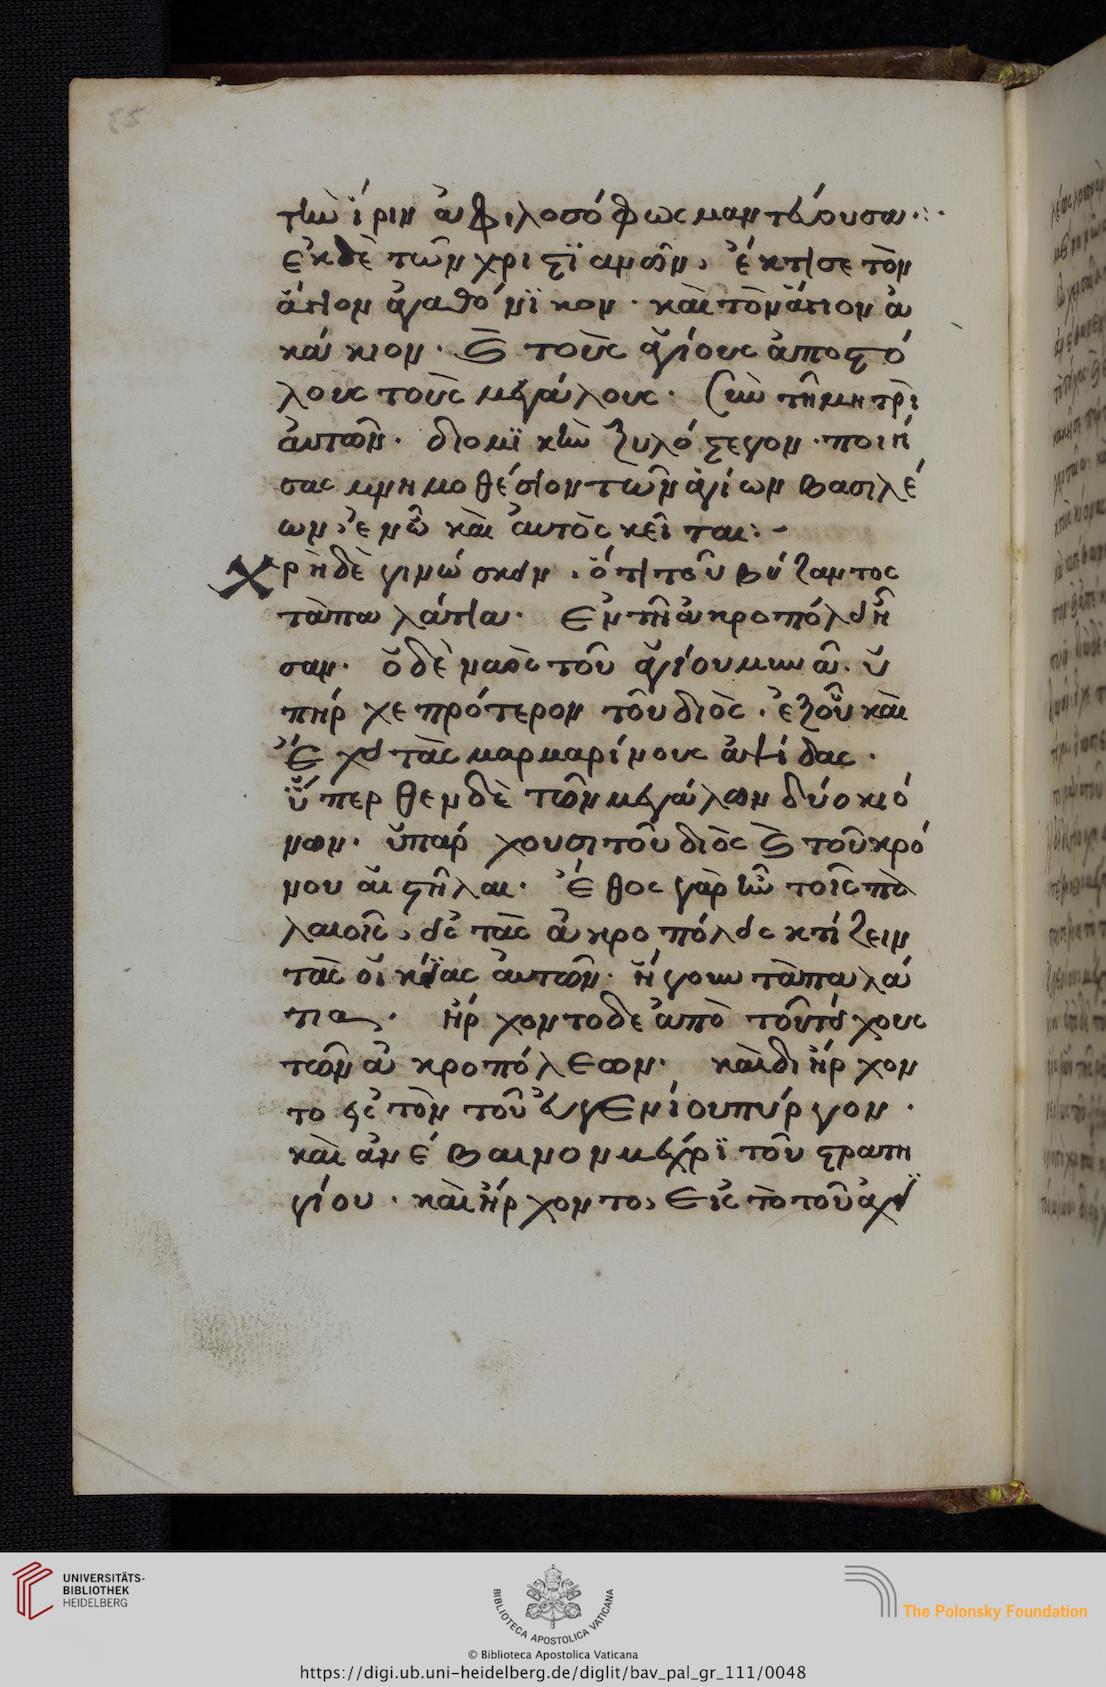 τὴν ἶριν ἀφιλοσόφως μαντεύουσαν·:·
ἐκ δὲ τῶν χριστϊανῶν, ἔκτησε τὸν
ἅγιον ἀγαθόνϊκον· καὶ τὸν ἅγιον ἀ
κάκιον· καὶ τοὺς ἁγίους ἀποστό
λους τοὺς μεγάλους· σὺν τῆ μητρὶ
αὐτῶν· διομϊκὴν ξυλόστεγον· ποιή
σας μνημοθέσιον τῶν ἁγίων βασιλέ
ων, ἐν ᾧ καὶ αὐτὸς κεῖται:-
Χρὴ δὲ γινώσκειν· ὅτι τοῦ βύζαντος
τὰ παλάτια· ἐν τῆ ἀκροπόλει ἦ
σαν· ὁ δὲ ναὸς τοῦ ἁγίου μηνᾶ· ὑ
πῆρχε πρότερον τοῦ διὸς· ἐξ οὗ καὶ
ἔχει τὰς μαρμαρίνους ἀψίδας·
ὕπερθεν δὲ τῶν μεγάλων δύο κιό
νων· ὑπάρχουσι τοῦ διὸς καὶ τοῦ κρό
νου αἱ στῆλαι· ἔθος γὰρ ἦν τοῖς πα
λαιοῖς, εἰς τὰς ἀκροπόλεις κτίζειν
τὰς οἰκίας αὐτῶν· ἤγουν τὰ παλά
τια· ἤρχοντο δὲ ἀπὸ τοῦ τείχους
τῶν ἀκροπόλεων· καὶ διήρχον
το εἰς τὸν τοῦ εὐγενίου πύργον·
καὶ ἀνέβαινον μέχρϊ τοῦ στρατη
γίου· καὶ ἤρχοντο, εἰς τὸ τοῦ ἀχϊ
UNIVERSITÄTS-
BIBLIOTHEK
HEIDELBERG
BIBLIOTECA APOSTOLICA VATICANA
The Polonsky Foundation
© Biblioteca Apostolica Vaticana
https://digi.ub.uni-heidelberg.de/diglit/bav_pal_gr_111/0048